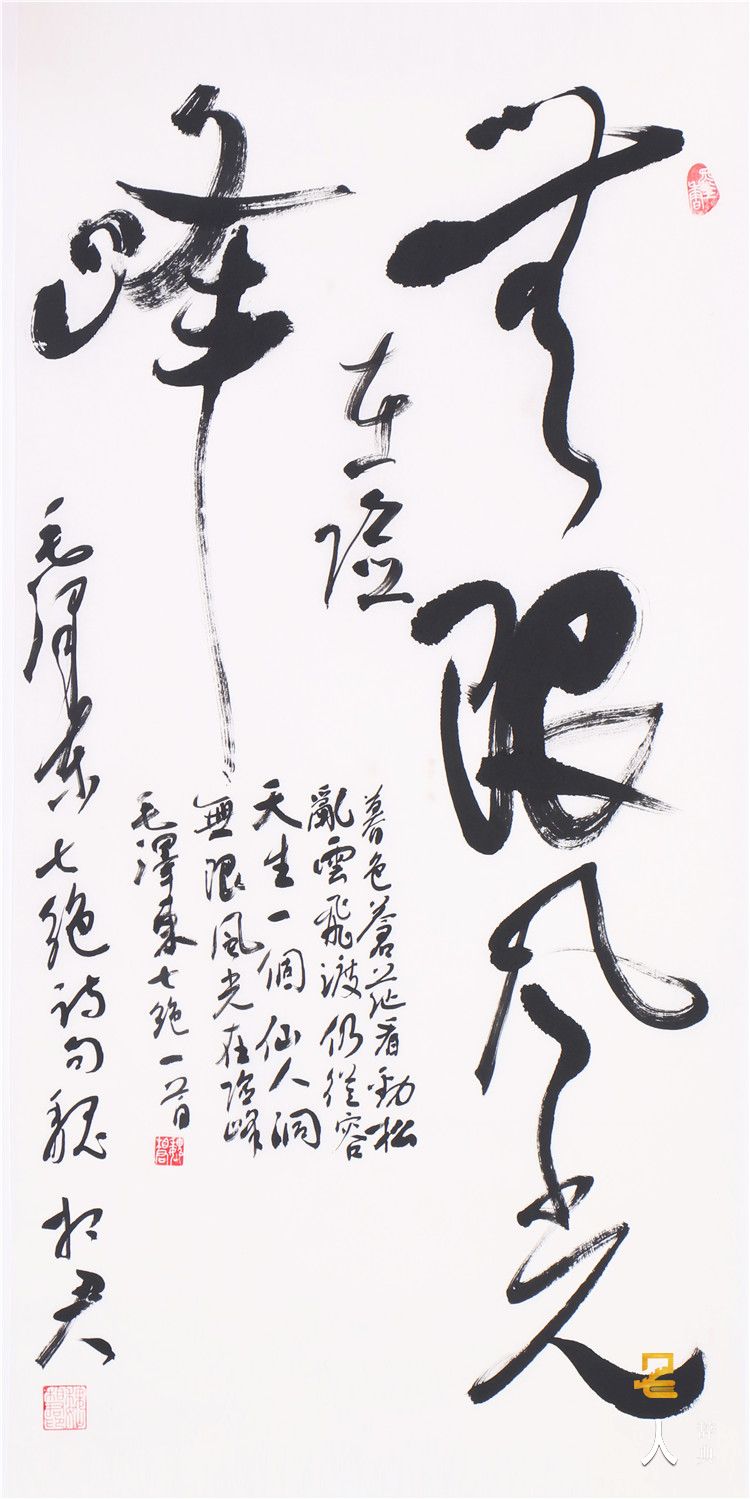 無限風光
在險
峰
暮色蒼茫看勁松
亂雲飛渡仍從容
天生一個仙人洞
無限風光在險峰
毛澤東七絶一首
毛澤東七絶诗句 魏
人